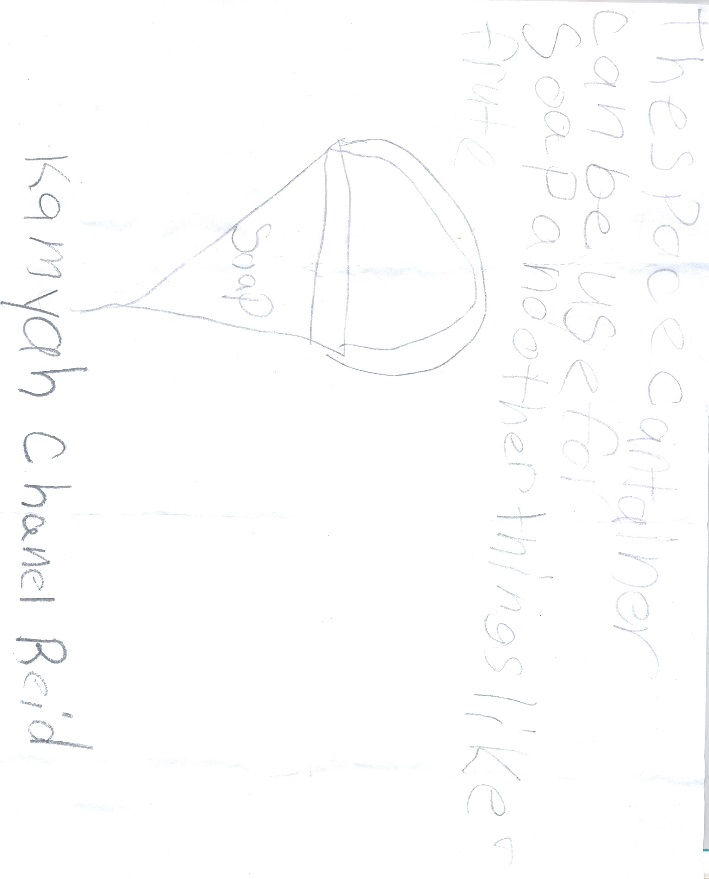 the space cantainer
can be use for
soap and other things like
frute
soap
Kamyah Chanel Reid